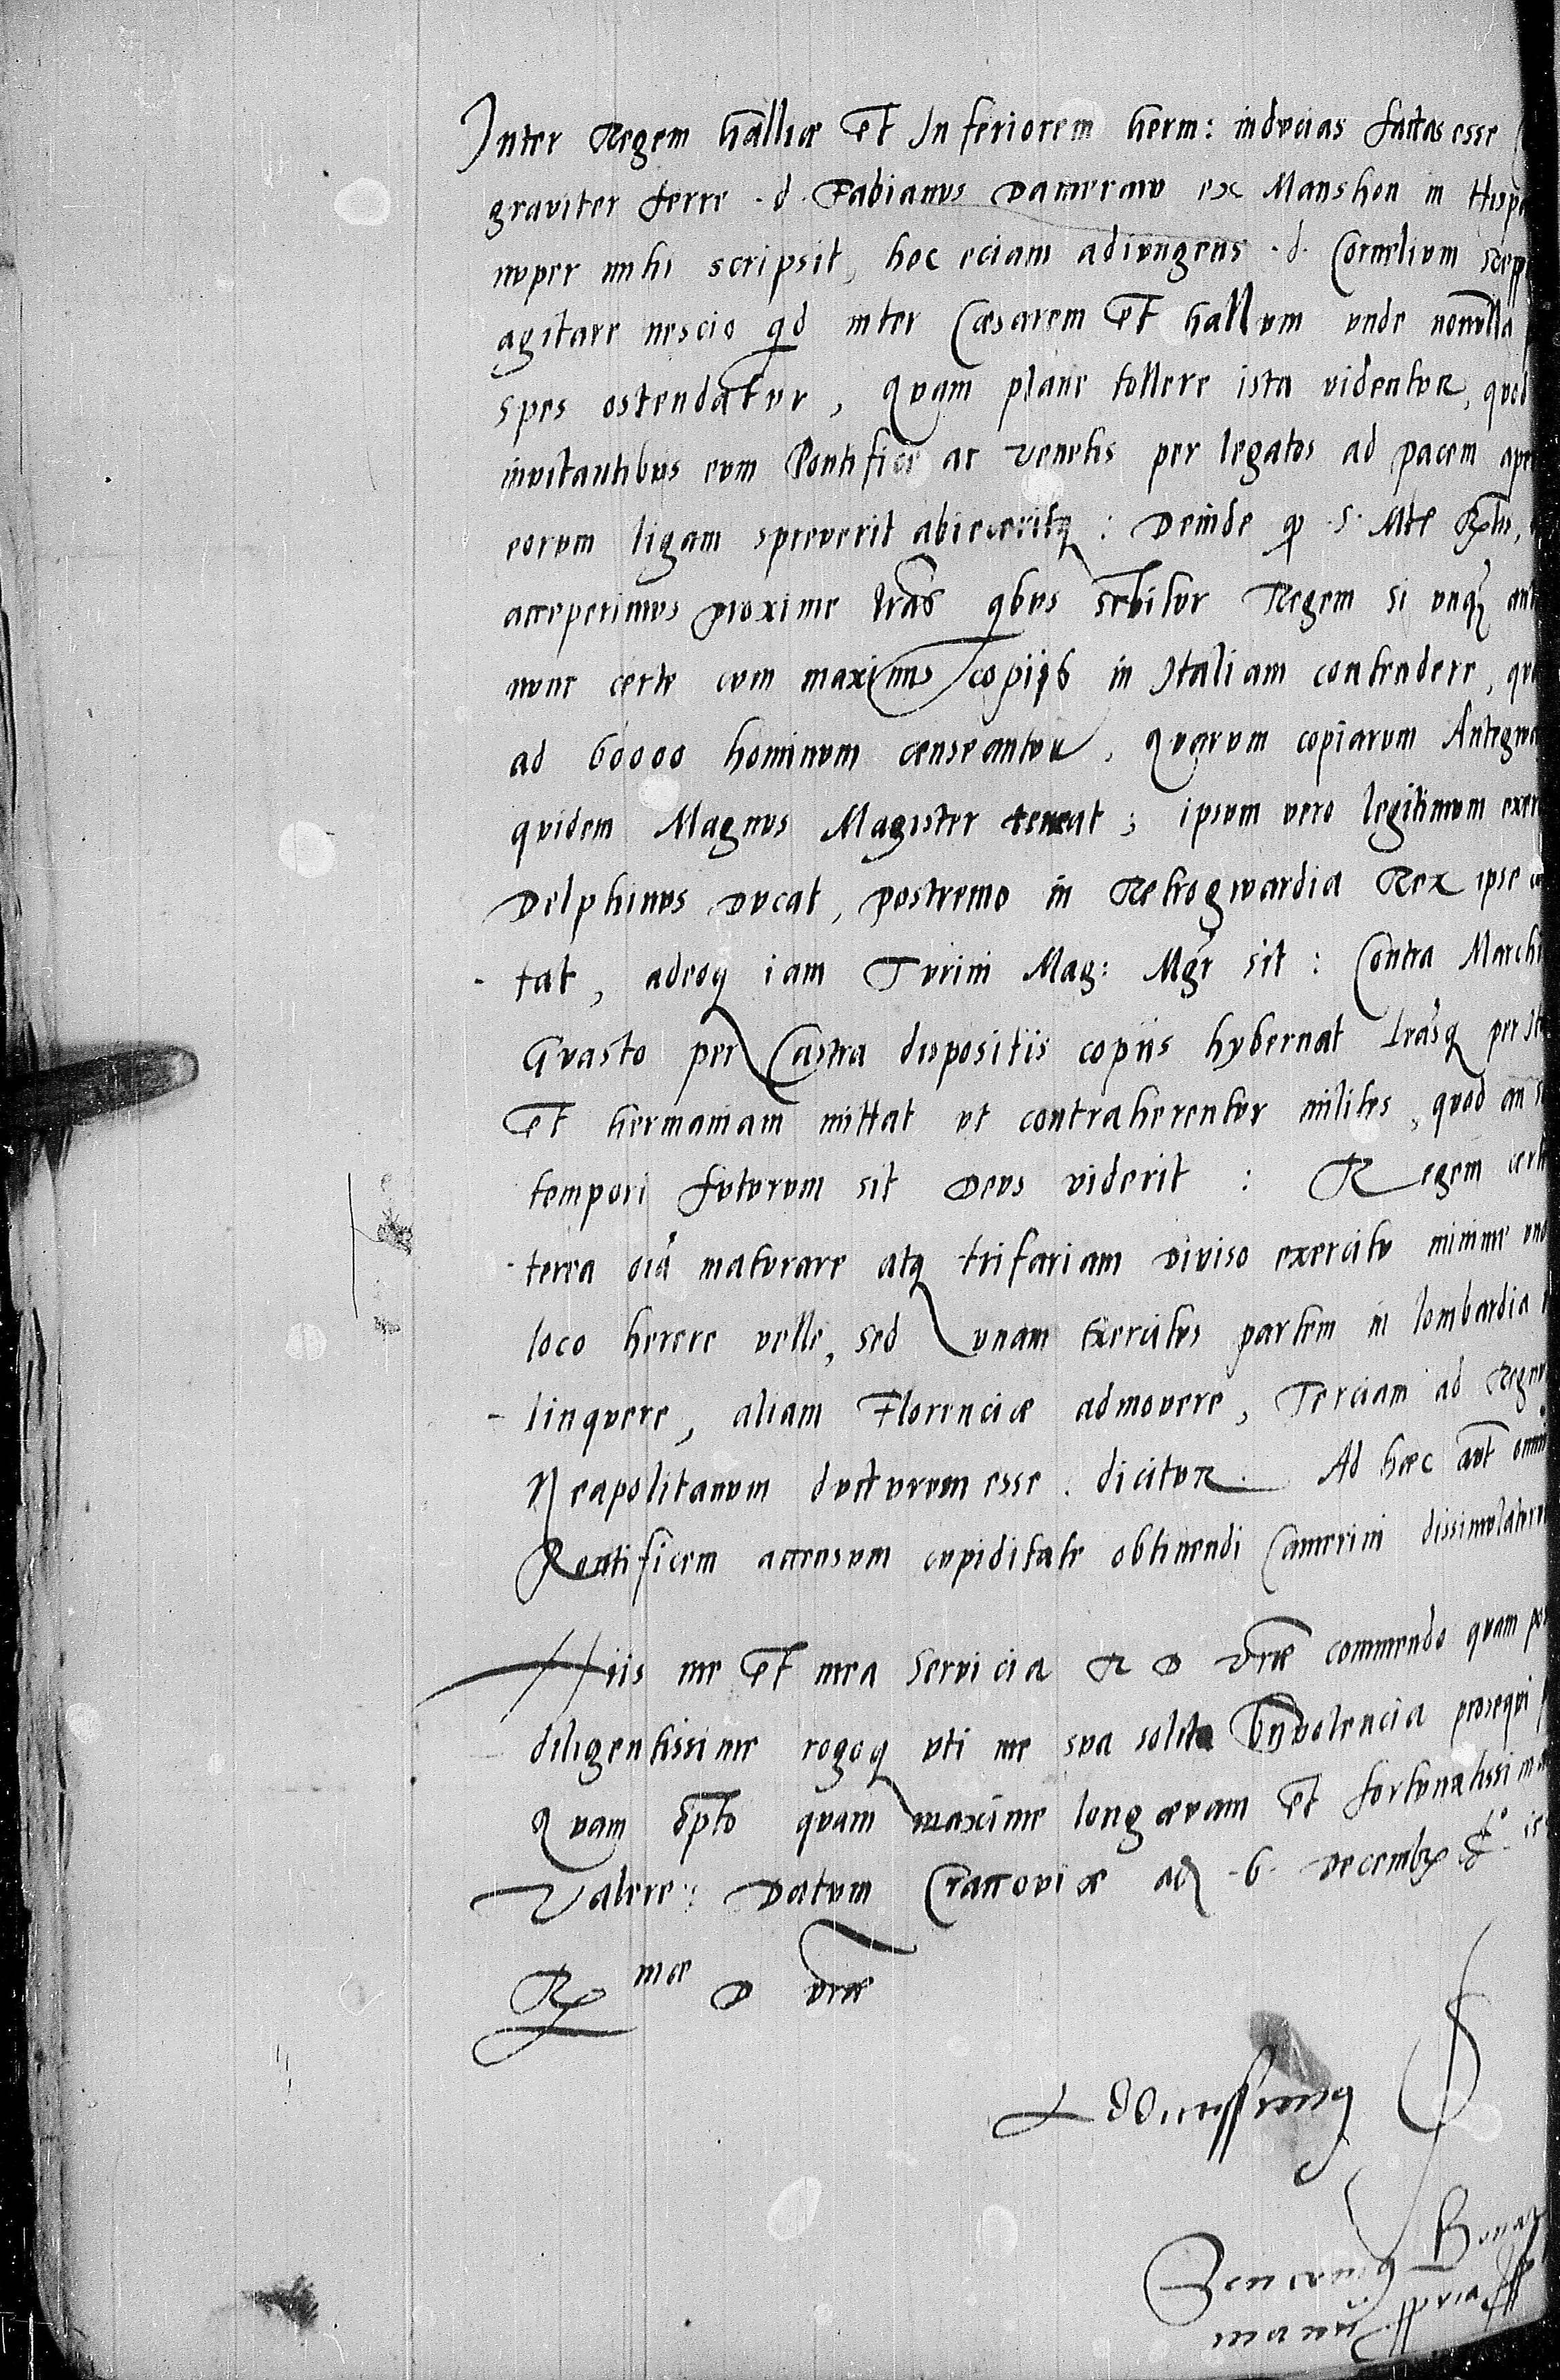 Inter Regem halliæ et Inferiorem herm: inducias factas esse
graviter ferre .d. Fabianus Damerau ex Manshon in Hispa
nuper mihi scripsit, hoc eciam adiungens .d. Cornelium Scepp
agitare nescio qd inter Cæsarem et hallum unde nonnulla
spes ostendatur, quam plane tollere ista videntur, quod
invitantibus eum Pontifice ac venetis per legatos ad pacem ape
eorum ligam spreverit abieceritq: Deinde qp .S. Mte
acceperimus proxime lras qbus scribitur Regem si unq ant
nunc certe cum maximis copiis in Italiam contendere, qu
ad 60000 hominum censeantur, quarum copiarum Antegwa
quidem Magnus Magister teneat; ipsum vero legitimum exer
Delphinus ducat, postremo in Retrogwardia Rex ipse
tat, adeoq iam Turini Mag: Mgr sit: Contra Marchi
Guasto per Castra dispositis copiis hybernat lrasq per It
et hermaniam mittat ut contraherentur milites, quod an s
tempori futurum sit Deus viderit: Regem cert
terea oia maturare atq trifariam diviso exercitu minime uno
loco herere velle, sed unam exercitus partem in lombardia
linquere, aliam Florenciæ admovere, Terciam ad Regnu
Neapolitanum ducturum esse. dicitur. Ad hæc aut omni
Pontificem accensum cupiditate obtinendi Camerini dissimulatur
Hiis me et mea Servicia R D vræ commendo quam po
diligentissime rogoq uti me sua solita benivolencia prosequi
Quam opto quam maxime longævam et fortunatissima
Valere: Datum Cracoviæ ad .6. Decembr
R mæ D vræ
Bonar
manu ppria